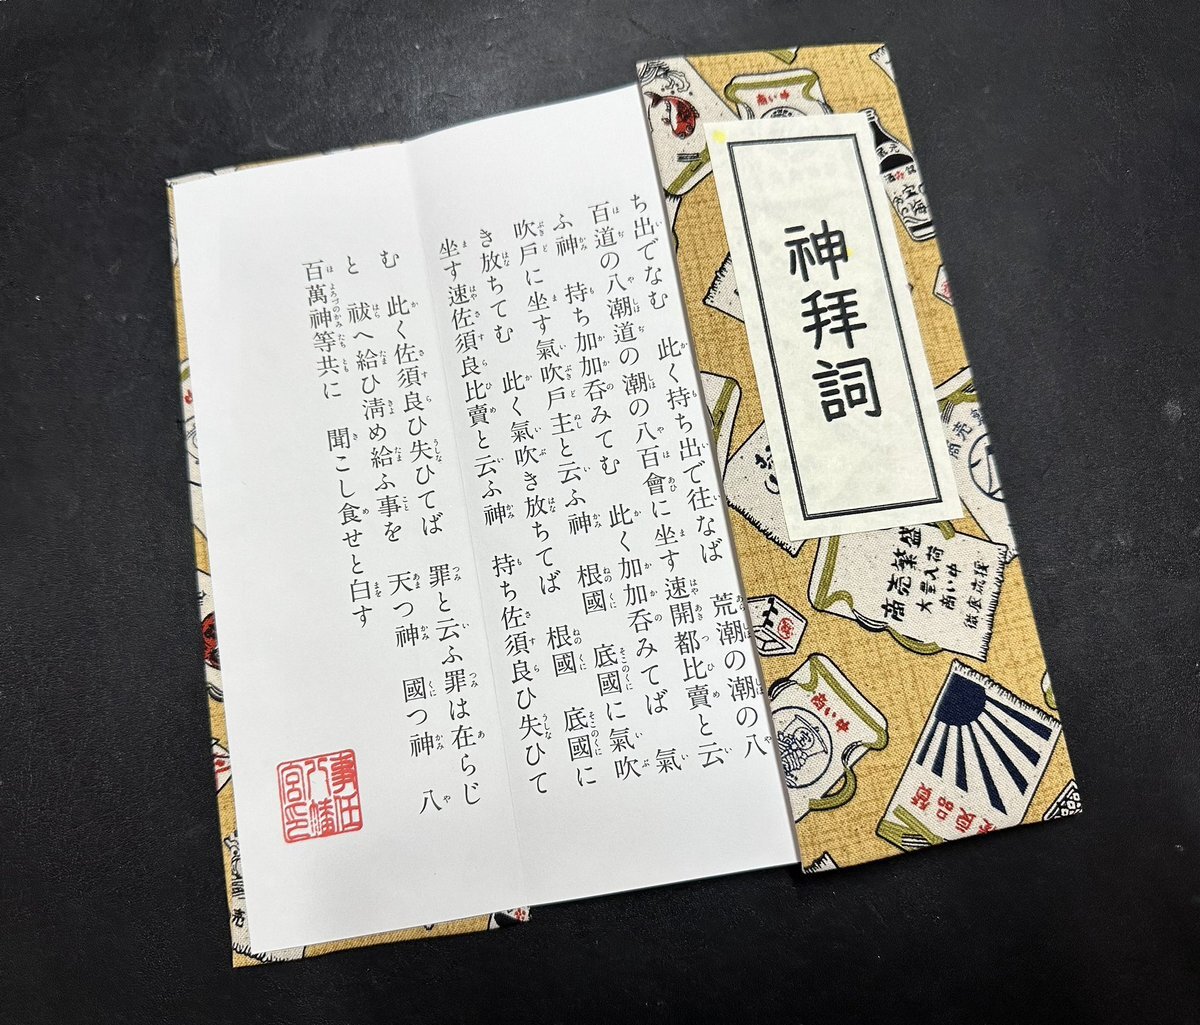 神拝詞
ち出でなむ 此く持ち出で往なば 荒潮の潮の八
百道の八潮道の潮の八百會に坐す速開都比賣と云
ふ神 持ち加加呑みてむ 此く加加呑みてば 氣
吹戸に坐す氣吹戸主と云ふ神 根國 底國に氣吹
き放ちてむ 此く氣吹き放ちてば 根國 底國に
坐す速佐須良比賣と云ふ神 持ち佐須良ひ失ひて
む 此く佐須良ひ失ひてば 罪と云ふ罪は在らじ
と 祓へ給ひ淸め給ふ事を 天つ神 國つ神 八
百萬神等共に 聞こし食せと白す
事任
八幡
宮印
商売繁盛
大量入荷
商い中